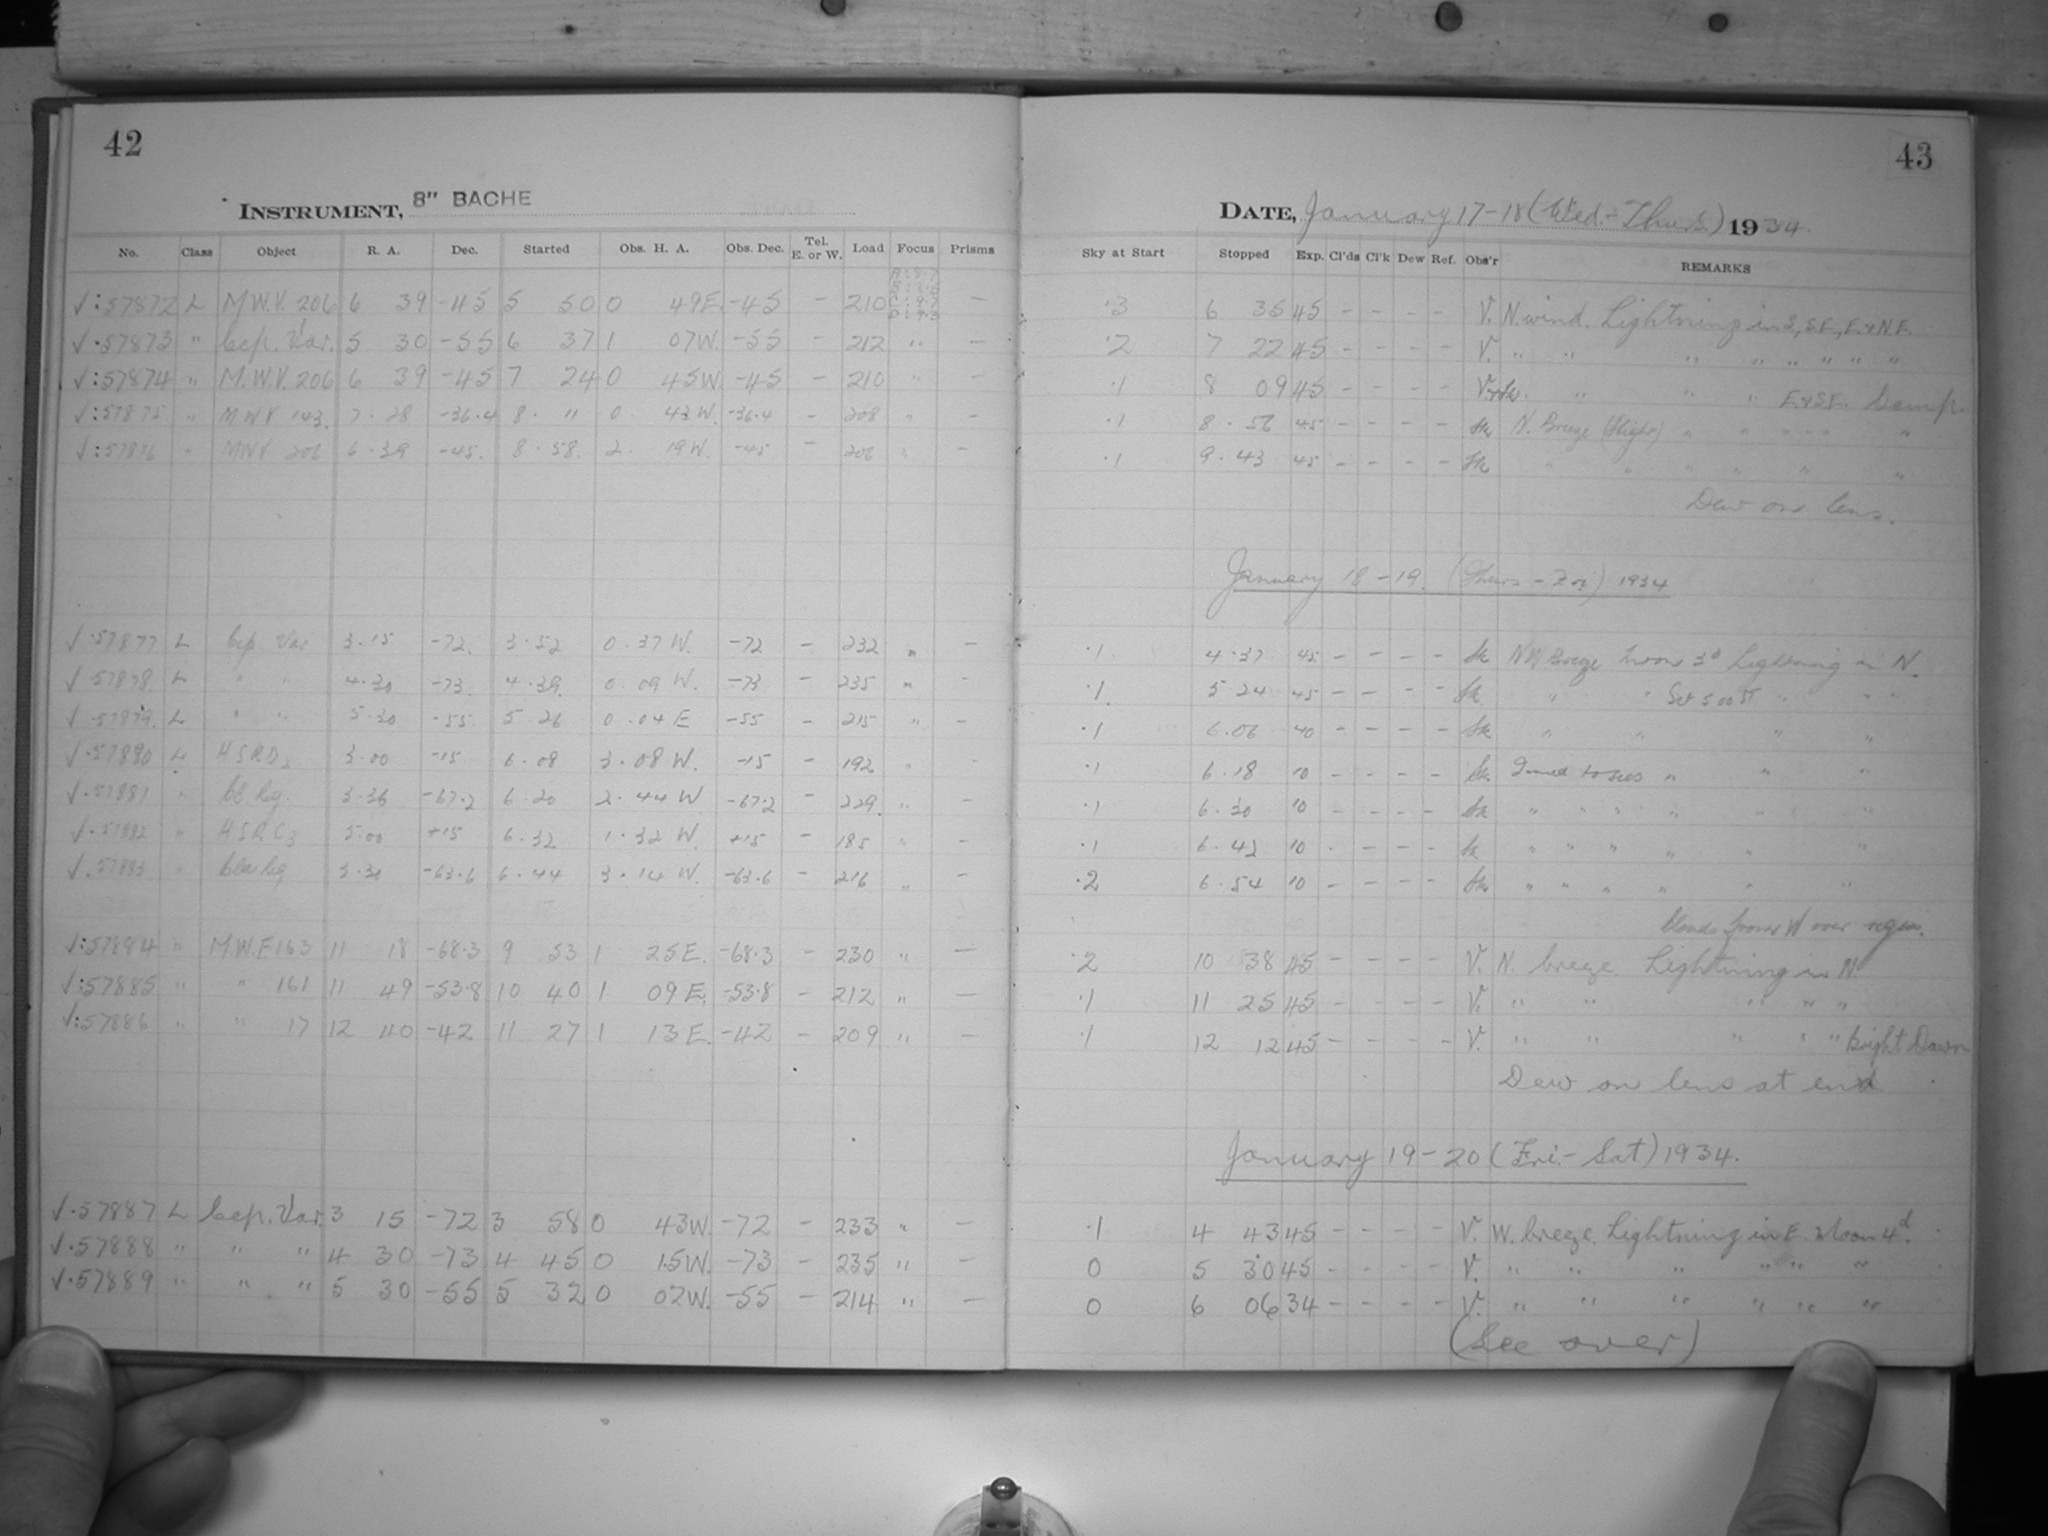 42
INSTRUMENT, 8" BACHE
No. Class Object R. A. Dec. Started Obs. H. A. Obs. Dec. Tel. E. or W. Load Focus Prisms
√:57872 L M.W.V. 206 6 39 -45 5 50 0 49E. -45 - 210 -
√.57873 " Cep. Var. 5 30 -55 6 37 1 07W. -55 - 212 " -
√:57874 " M.W.V. 206 6 39 -45 7 24 0 45W. -45 - 210 " -
√:57875 " MWV 143. 7.28 -36.4 8. 11 0. 43W. -36.4 - 208 " -
√:57876 " MWV 206 6.39 -45. 8.58. 2. 19W. -45 - 206 " -
√.57877 L Cep Var 3.15 -72. 3.52 0.37W. -72 - 232 " -
√.57878. L " " 4.30 -73. 4.39. 0.09W. -73 - 235 " -
√.57879. L " " 5.30 -55 5.26 0.04E -55 - 215 " -
√.57880 L HSRD2 3.00 -15 6.08 3.08W. -15 - 192 " -
√.57881 " 3.36 -67.2 6.20 2.44W -67.2 - 229. " -
√.57882 " HSRC3 5.00 +15 6.32 1.32W. +15 - 185 " -
√.57883 " 3.30 -63.6 6.44 3.14W. -63.6 - 216 " -
√:57884 " M.W.F. 163 11 18 -68.3 9 53 1 25E. -68.3 - 230 " -
√:57885 " " 161 11 49 -53.8 10 40 1 09E. -53.8 - 212 " -
√:57886 " " 17 12 40 -42 11 27 1 13E. -42 - 209 " -
√.57887 L Cep. Var. 3 15 -72 3 58 0 43W. -72 - 233 " -
√.57888 " " " 4 30 -73 4 45 0 15W. -73 - 235 " -
√.57889 " " " 5 30 -55 5 32 0 02W. -55 - 214 " -
43
DATE, January 17-18 (Wed.-Thurs.) 1934.
Sky at Start Stopped Exp. Cl'ds Cl'k Dew Ref. Obs'r REMARKS
.3 6 35 45 - - - - V. N. wind. Lightning in S., S.E., E. & N.E.
.2 7 22 45 - - - - V. " " " " " " " "
.1 8 09 45 - - - - " " " E. & S.E. Damp.
.1 8.56 45 - - - - N. Breeze (Slight) " " " " " "
.1 9.43 45 - - - - " " " " " "
Dew on lens.
January 18-19. (Thurs-Fri) 1934
.1 4.37 45 - - - - NW Breeze Moon 3d Lightning in N.
.1 5 24 45 - - - - " " Set 5 00 ST " " "
.1 6.06 40 - - - - " " " "
.1 6.18 10 - - - - " " "
.1 6.30 10 - - - - " " " " " " "
.1 6.42 10 - - - - " " " " " "
.2 6.54 10 - - - - " " " " " "
Clouds from W over region.
.2 10 38 45 - - - - V. N. breeze. Lightning in N
.1 11 25 45 - - - - V. " " " " "
.1 12 12 45 - - - - V. " " " " " Bright Dawn
Dew on lens at end
January 19-20 (Fri.-Sat) 1934.
.1 4 43 45 - - - - V. W. breeze. Lightning in E. Moon 4d.
0 5 30 45 - - - - V. " " " " " "
0 6 06 34 - - - - V. " " " " " "
(See over)